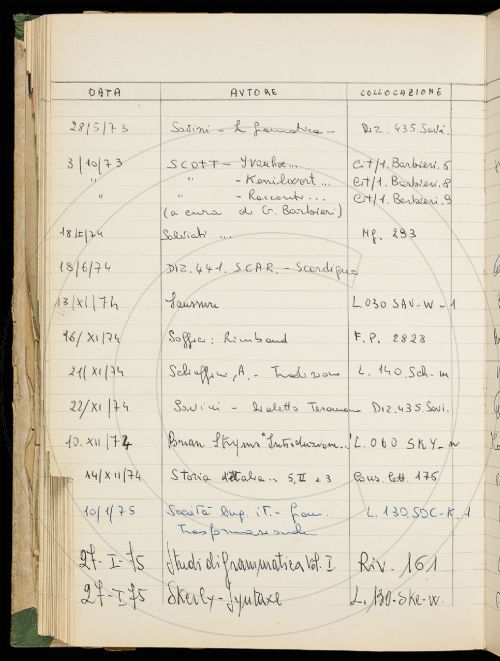 DATA AUTORE COLLOCAZIONE
28/5/73 Savini - La Gramatica - Diz. 435. Savi.
3/10/73 SCOTT - Yvanhoe... Cit/1. Barbieri. 6
" " - Kenilwort... Cit/1. Barbieri. 8
" " - Racconti... Cit/1. Barbieri. 9
(a cura di G. Barbieri)
18/II/74 Salviati ... Mg. 293
18/6/74 DIZ. 441. SCAR. - Scardigno
13/XI/74 Saussure L 030 SAV-W-1
16/XI/74 Soffici: Rimbaud F.P. 2828
21/XI/74 Schiaffini, A. - Tradizione L. 140. Sch-m
22/XI/74 Savini - Dialetto Teramano Diz. 435. Savi.
10.XII/74 Brian Skyrms "Introduzione.." L 060 SKY-
14/XII/74 Storia d'Italia.. 5, II e 3 Cons. Lett. 176
10/1/75 Società Ling. IT. - Gram. L. 130. SOC-K. 1
Trasformazionale
27-I-75 Studi di grammatica Vol. I Riv. 161
27-I-75 Skerly - Syntaxe L. 130-Ske-w.